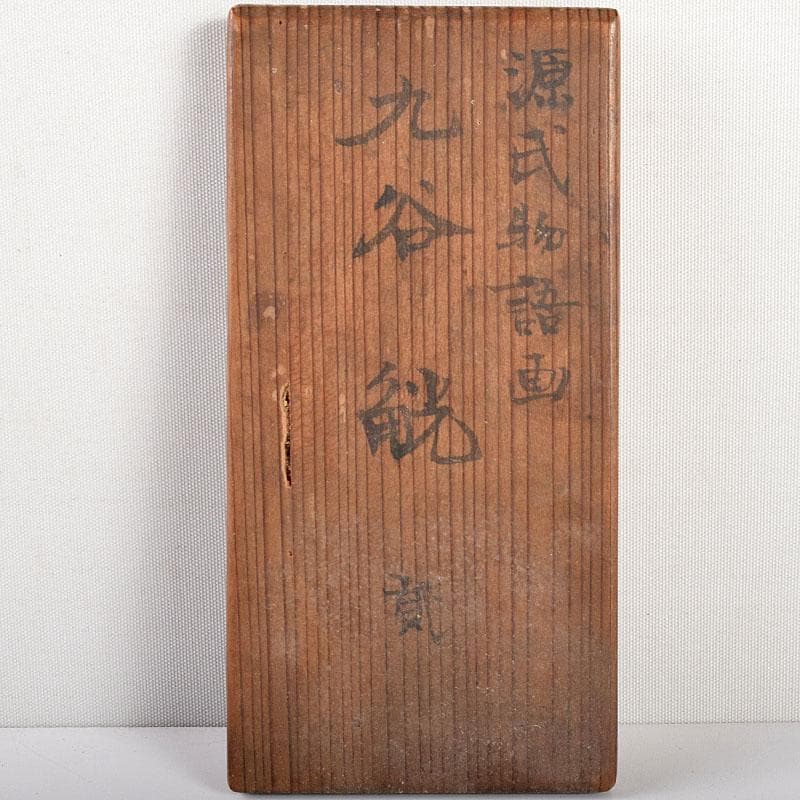 源氏物語画
九谷觥
貳